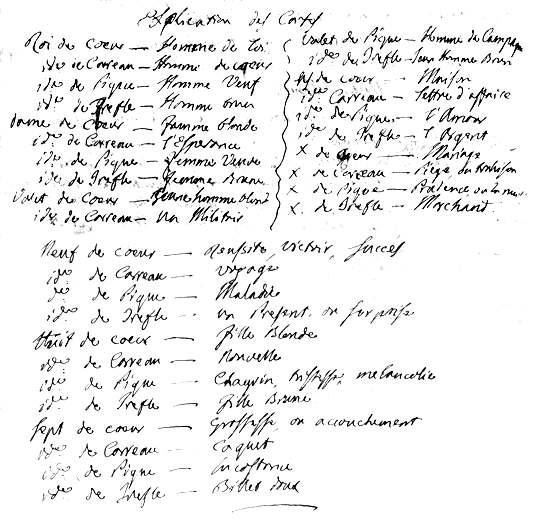 Explication des Cartes
Roi de Coeur — Homme de Loi
ide. de Carreau — Homme de coeur
ide. de Pique — Homme Veuf
ide. de Trefle — Homme brun
Dame de Coeur — Famme blonde
ide. de Carreau — l'Esperance
ide. de Pique — Femme Veuve
ide. de Trefle — Femme Brune
Valet de Coeur — Jeune homme blond
ide. de Carreau — un Militair
Valet de Pique — Homme de Campagne
ide. de Trefle — Jeun Homme Brun
As. de coeur — Maison
ide. Carreau — lettre d'affaire
ide. de Pique — l'Amour
ide. de Trefle — l'Argent
X de Coeur — Mariage
X de Carreau — Piege ou trahison
X. de Pique —
X. de Trefle — Marchand.
Neuf de coeur — Reussite, victoir, succés
ide. de Carreau — voyage
ide. de Pique — Maladie
ide. de Trefle — un Present, ou surprise
Huit de coeur — fille Blonde
ide. de Carreau — Nouvelle
ide. de Pique — Chagrin, tristesse, melancolie
ide. de Trefle — fille Brune
Sept de coeur — Grossesse, ou accouchement
ide. de Carreau — Caquet
ide. de Pique — Incostance
ide. de Trefle — Billet doux